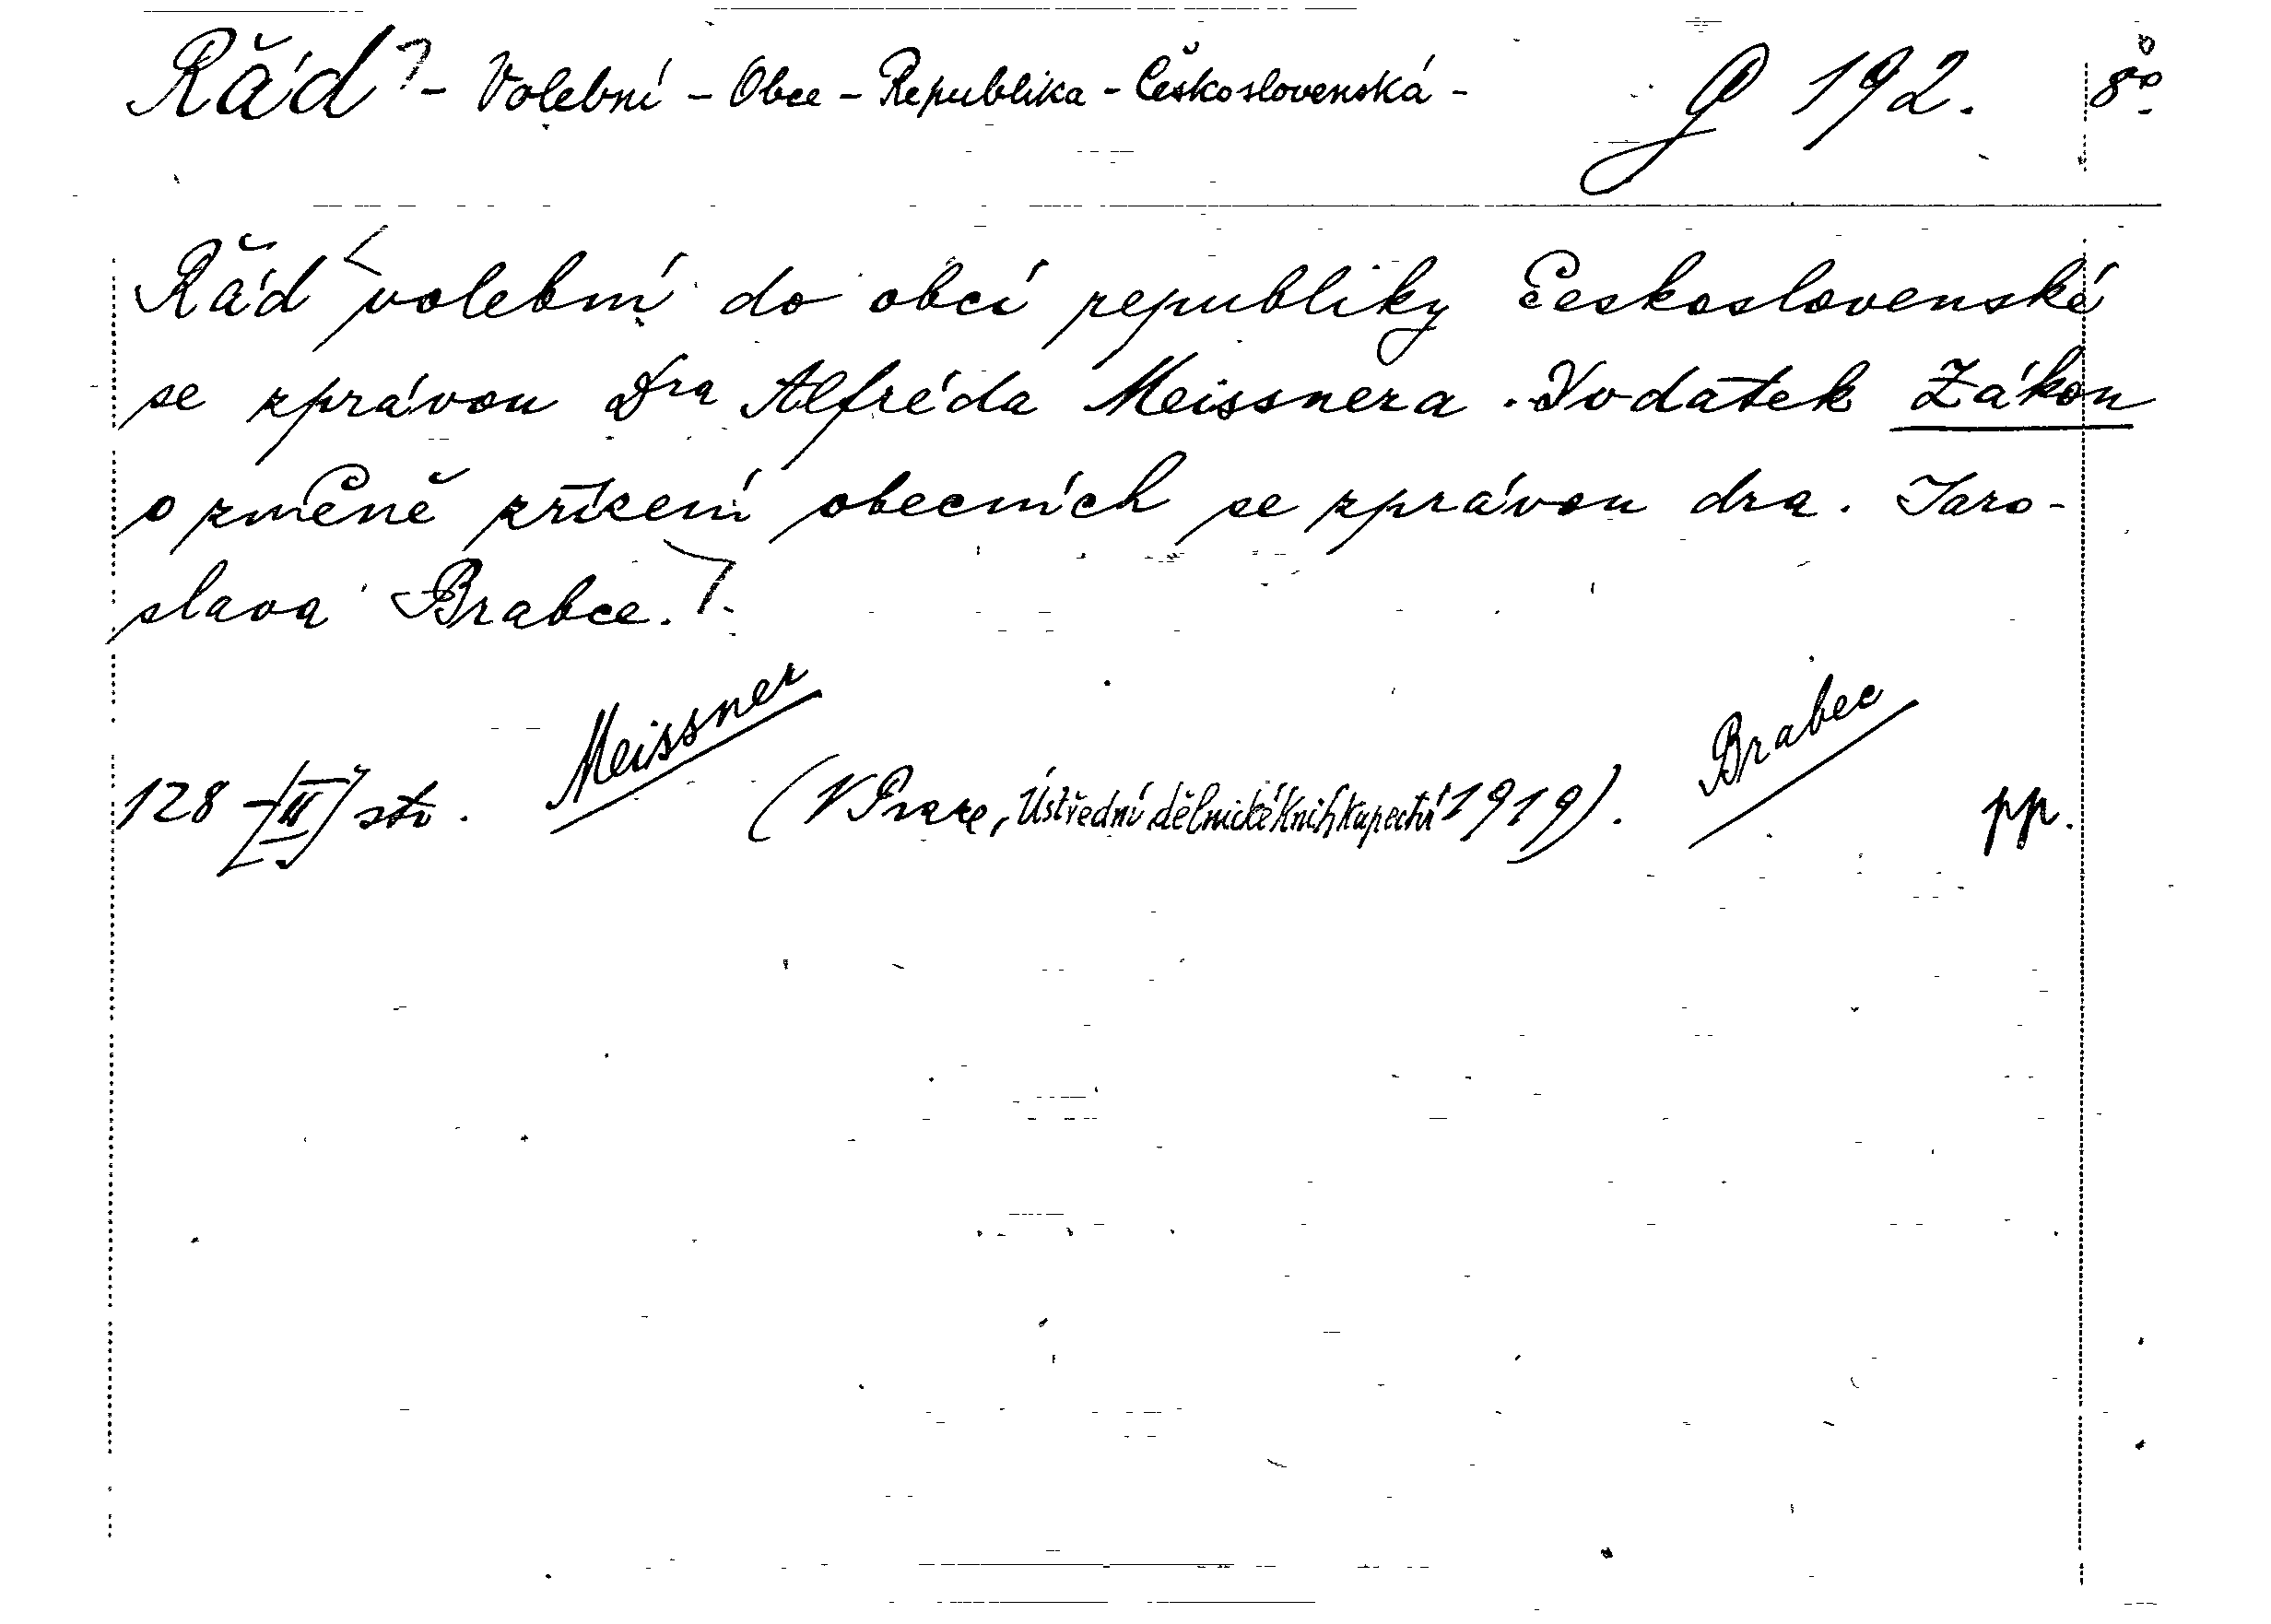 Řád - Volební - Obce - Republika - Československá - 192. 8°
Řád volební do obcí republiky Československé
se zprávou Dra Alfréda Meissnera. Dodatek Zákon
o změně zřízení obecních se zprávou dra. Jaro-
slava Brabce.
Meissner Brabec
128 [II] str. (V Praze, Ústřední dělnické knihkupectví 1919). pp.